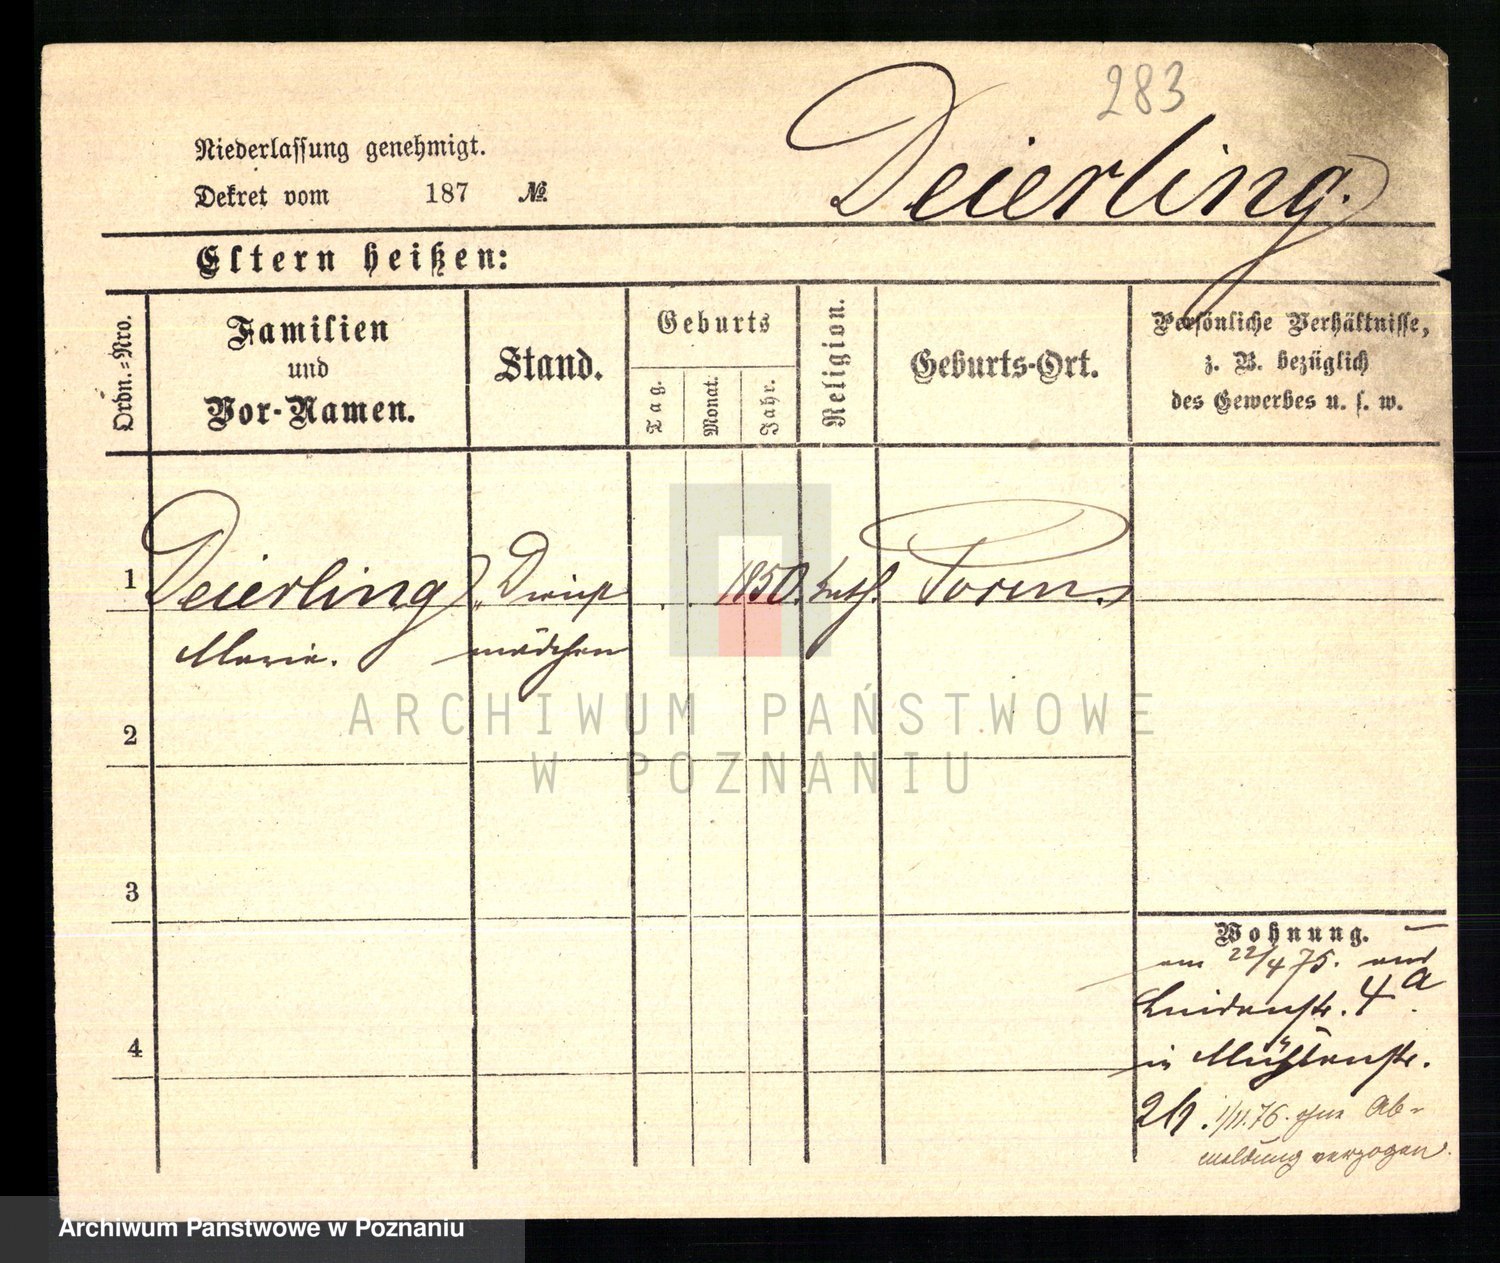 283
Deierling.
Niederlassung genehmigt.
Dekret vom 187 №
Eltern heißen:
Ordn.-Nro.
Familien
und
Vor-Namen.
Stand.
Geburts
Tag.
Monat.
Jahr.
Religion.
Geburts-Ort.
Persönliche Verhältnisse,
z. B. bezüglich
des Gewerbes u. s. w.
1 Deierling Dienst 1850. kath. Posen.
Marie. mädchen
2
3
4
Wohnung.
am 22/4 75. aus
Lindenstr. 4a.
in Mühlenstr.
1/11. 76. ohne Ab-
meldung verzogen.
ARCHIWUM PAŃSTWOWE
W POZNANIU
Archiwum Państwowe w Poznaniu